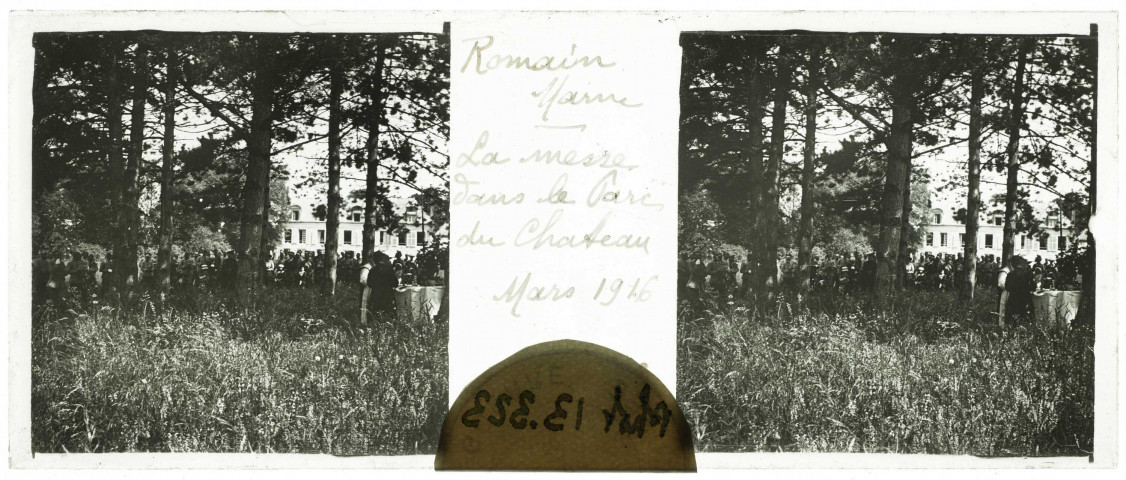 Romain
Marne
La messe
dans le Parc
du Chateau
Mars 1916
13.353